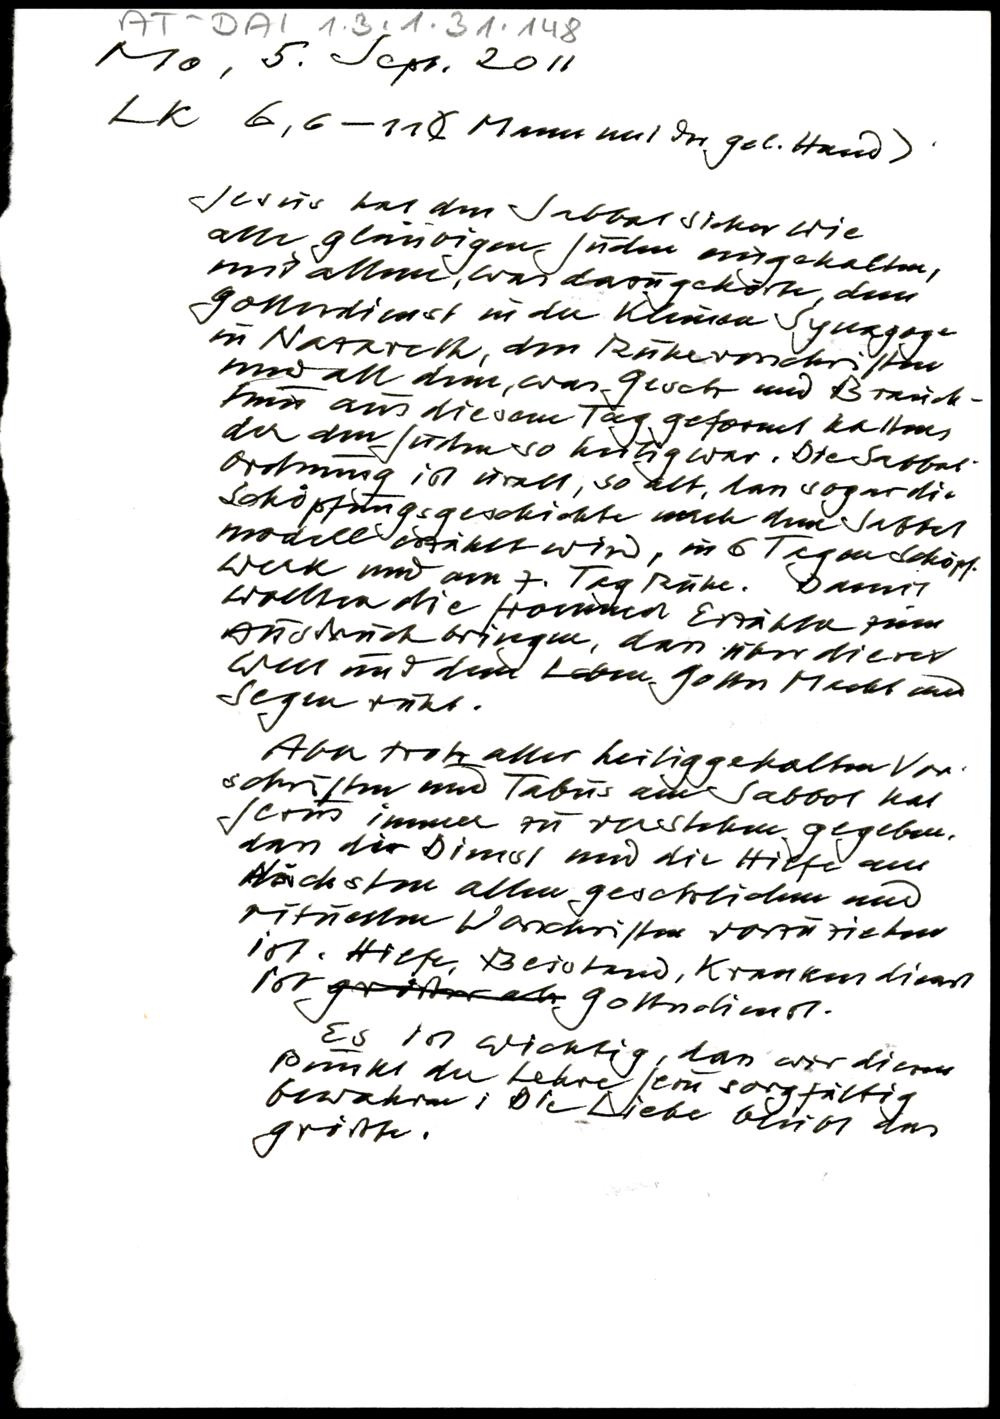 AT-DAI 1.3.1.31.148
Mo, 5. Sept. 2011
LK 6,6-11 (Mann mit der gel. Hand)
Jesus hat den Sabbat sicher wie
alle gläubigen Juden eingehalten,
mit allem, was dazugehörte, dem
Gottesdienst in der kleinen Synagoge
in Nazareth, den Ruhevorschriften
und all dem, was Gesetz und Brauch-
tum aus diesem Tag geformt hatten,
der den Juden so heilig war. Die Sabbat-
ordnung ist uralt, so alt, dass sogar die
Schöpfungsgeschichte nach dem Sabbat
modell erzählt wird, in 6 Tagen Schöpf.
werk und am 7. Tag Ruhe. Damit
wollten die frommen Erzähler zum
Ausdruck bringen, dass über dieser
Welt und dem Leben Gottes Macht und
Segen ruht.
Aber trotz aller heiliggehalten Vor-
schriften und Tabus am Sabbat hat
Jesus immer zu verstehen gegeben,
dass der Dienst und die Hilfe am
Nächsten allen gesetzlichen und
rituellen Vorschriften vorzuziehen
ist. Hilfe, Beistand, Krankendienst
ist größer als Gottesdienst.
Es ist wichtig, dass wir diesen
Punkt der Lehre Jesu sorgfältig
bewahren: Die Liebe bleibt das
größte.